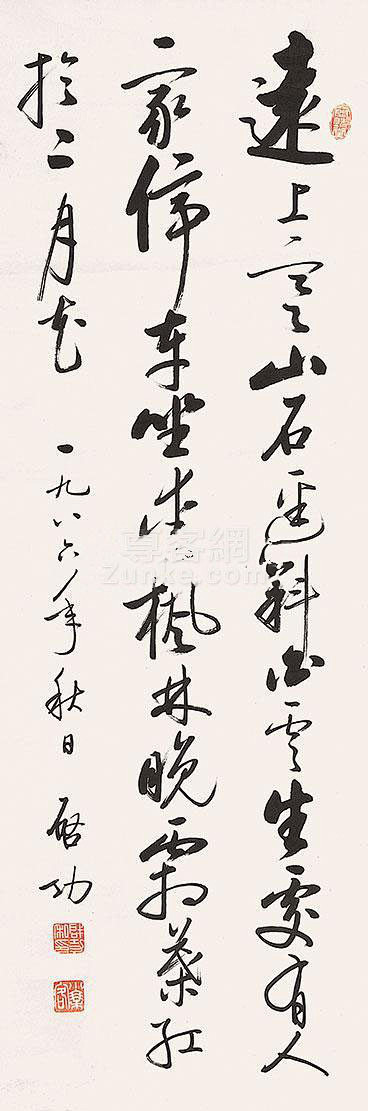 遠上寒山石逕斜白雲生處有人
家停車坐愛楓林晚霜葉紅
於二月花 一九八六年秋日 啓功
尊客網
Zunke.com